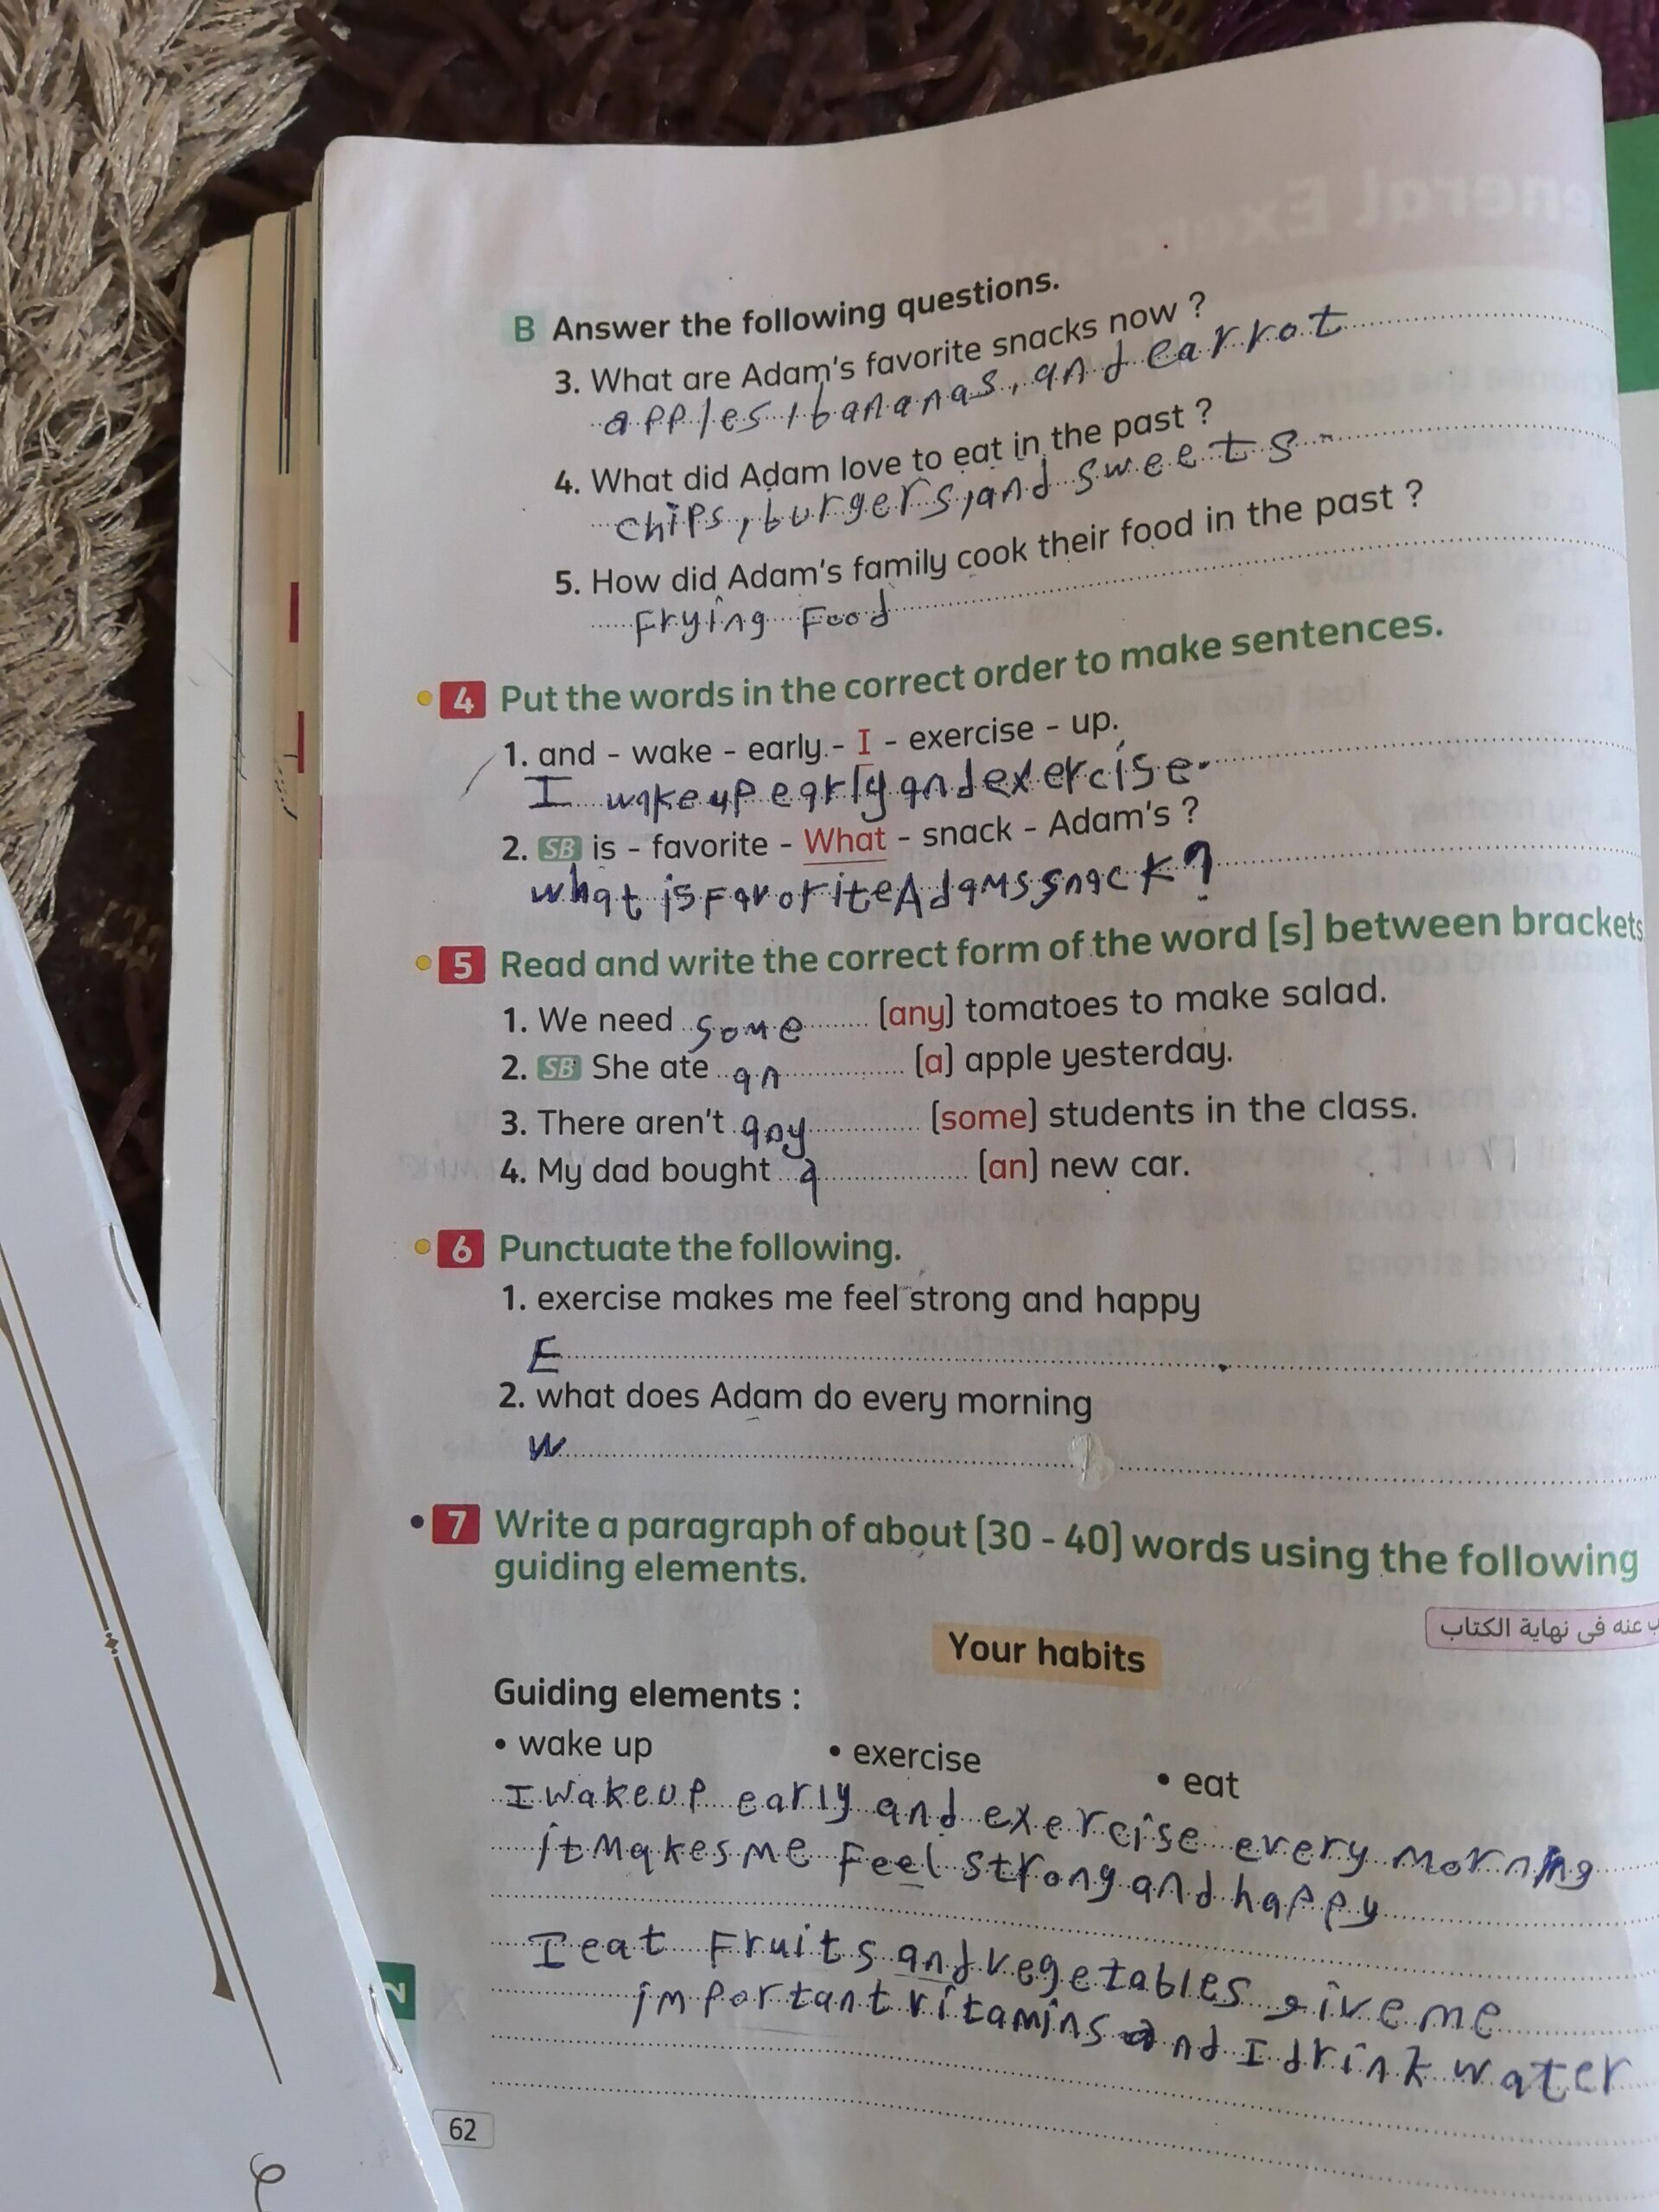 B Answer the following questions.
3. What are Adam's favorite snacks now ?
apples, bananas, and carrot
4. What did Adam love to eat in the past ?
chips, burgers, and sweets
5. How did Adam's family cook their food in the past ?
Frying Food
4 Put the words in the correct order to make sentences.
1. and - wake - early - I - exercise - up.
I wake up early and exercise.
2. SB is - favorite - What - snack - Adam's ?
what is Favorite Adams snack?
5 Read and write the correct form of the word [s] between brackets
1. We need some [any] tomatoes to make salad.
2. SB She ate an [a] apple yesterday.
3. There aren't any [some] students in the class.
4. My dad bought a [an] new car.
6 Punctuate the following.
1. exercise makes me feel strong and happy
E .
2. what does Adam do every morning
W ?
7 Write a paragraph of about [30 - 40] words using the following
guiding elements.
عنه فى نهاية الكتاب
Your habits
Guiding elements :
• wake up • exercise • eat
I wake up early and exercise every morning
it makes me feel strong and happy
I eat Fruits and vegetables give me
important vitamins and I drink water
62